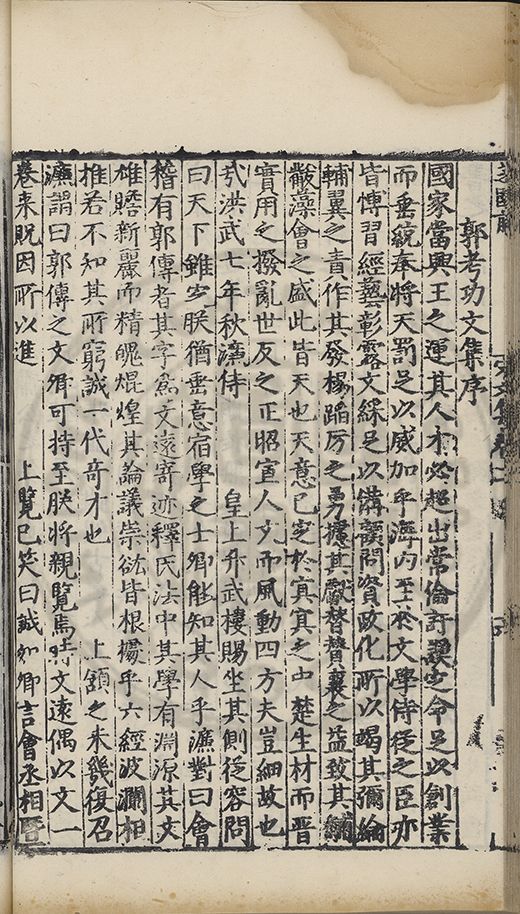 郭考功文集序
國家當興王之運其人才必超出常倫訏謨定命足以創業
而垂統奉將天罰足以威加乎海內至於文學侍從之臣亦
皆博習經藝彰露文綵足以備顧問資政化所以竭其彌綸
輔翼之責作其發楊蹈厉之勇據其獻替贊襄之益致其黼
黻藻會之盛此皆天也天意已定於冥冥之中楚生材而晋
實用之撥亂世反之正昭宣人文而風動四方夫豈細故也
㢤洪武七年秋濂侍 皇上升武樓賜坐其則從容問
曰天下雖少朕猶垂意宿學之士卿能知其人乎濂對曰會
稽有郭傳者其字為文遠寄迹釋氏法中其學有淵源其文
雄贍新麗而精魄焜煌其論議崇竑皆根據乎六經波瀾相
推若不知其所窮誠一代奇才也 上頷之未幾復召
濂謂曰郭傳之文卿可持至朕將親覽焉時文遠偶以文一
卷来貺因所以進 上覧已笑曰誠如卿言會丞相曁